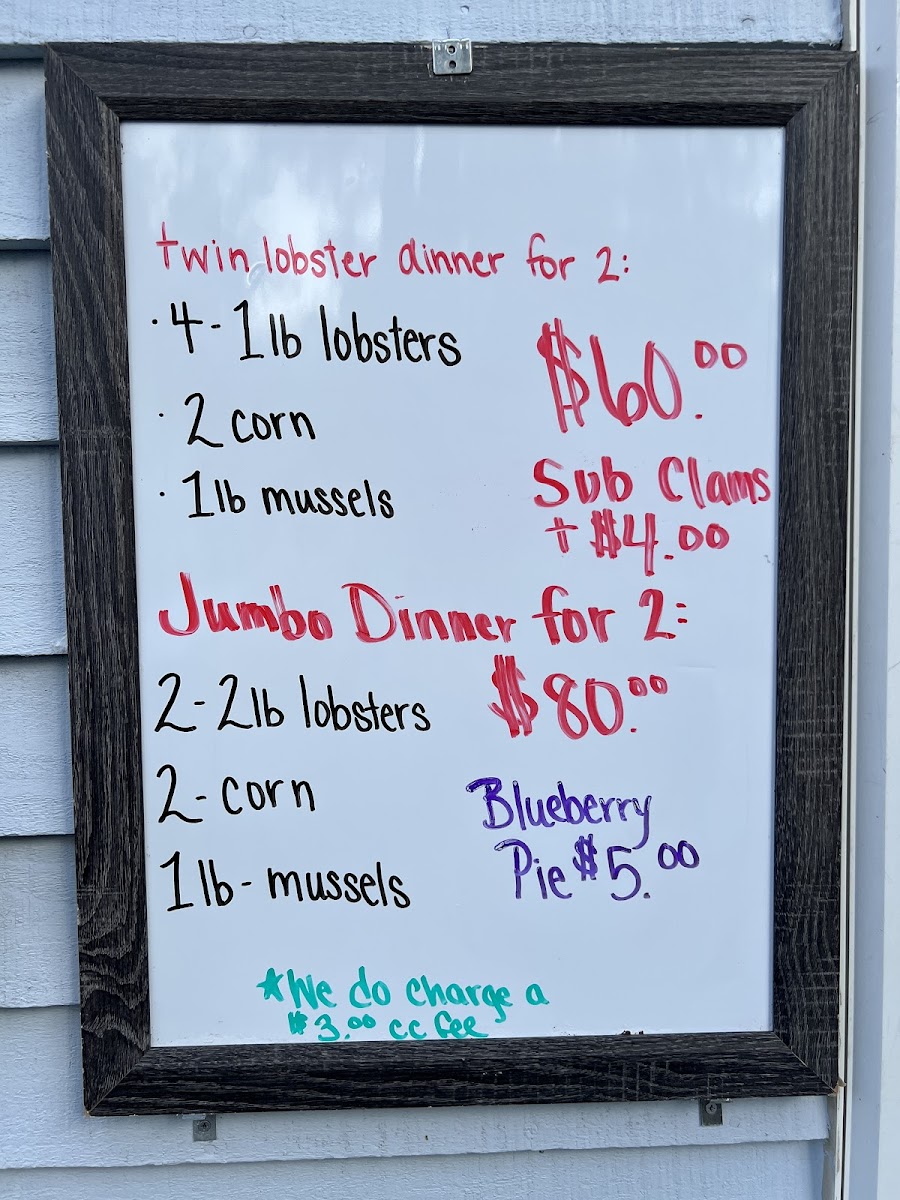 twin lobster dinner for 2:
· 4 - 1 lb lobsters
$60.00
· 2 corn
· 1lb mussels
Sub Clams
+ $4.00
Jumbo Dinner for 2:
2 - 2lb lobsters
$80.00
2 - corn
1 lb - mussels
Blueberry
Pie $5.00
*We do charge a
$3.00 cc fee